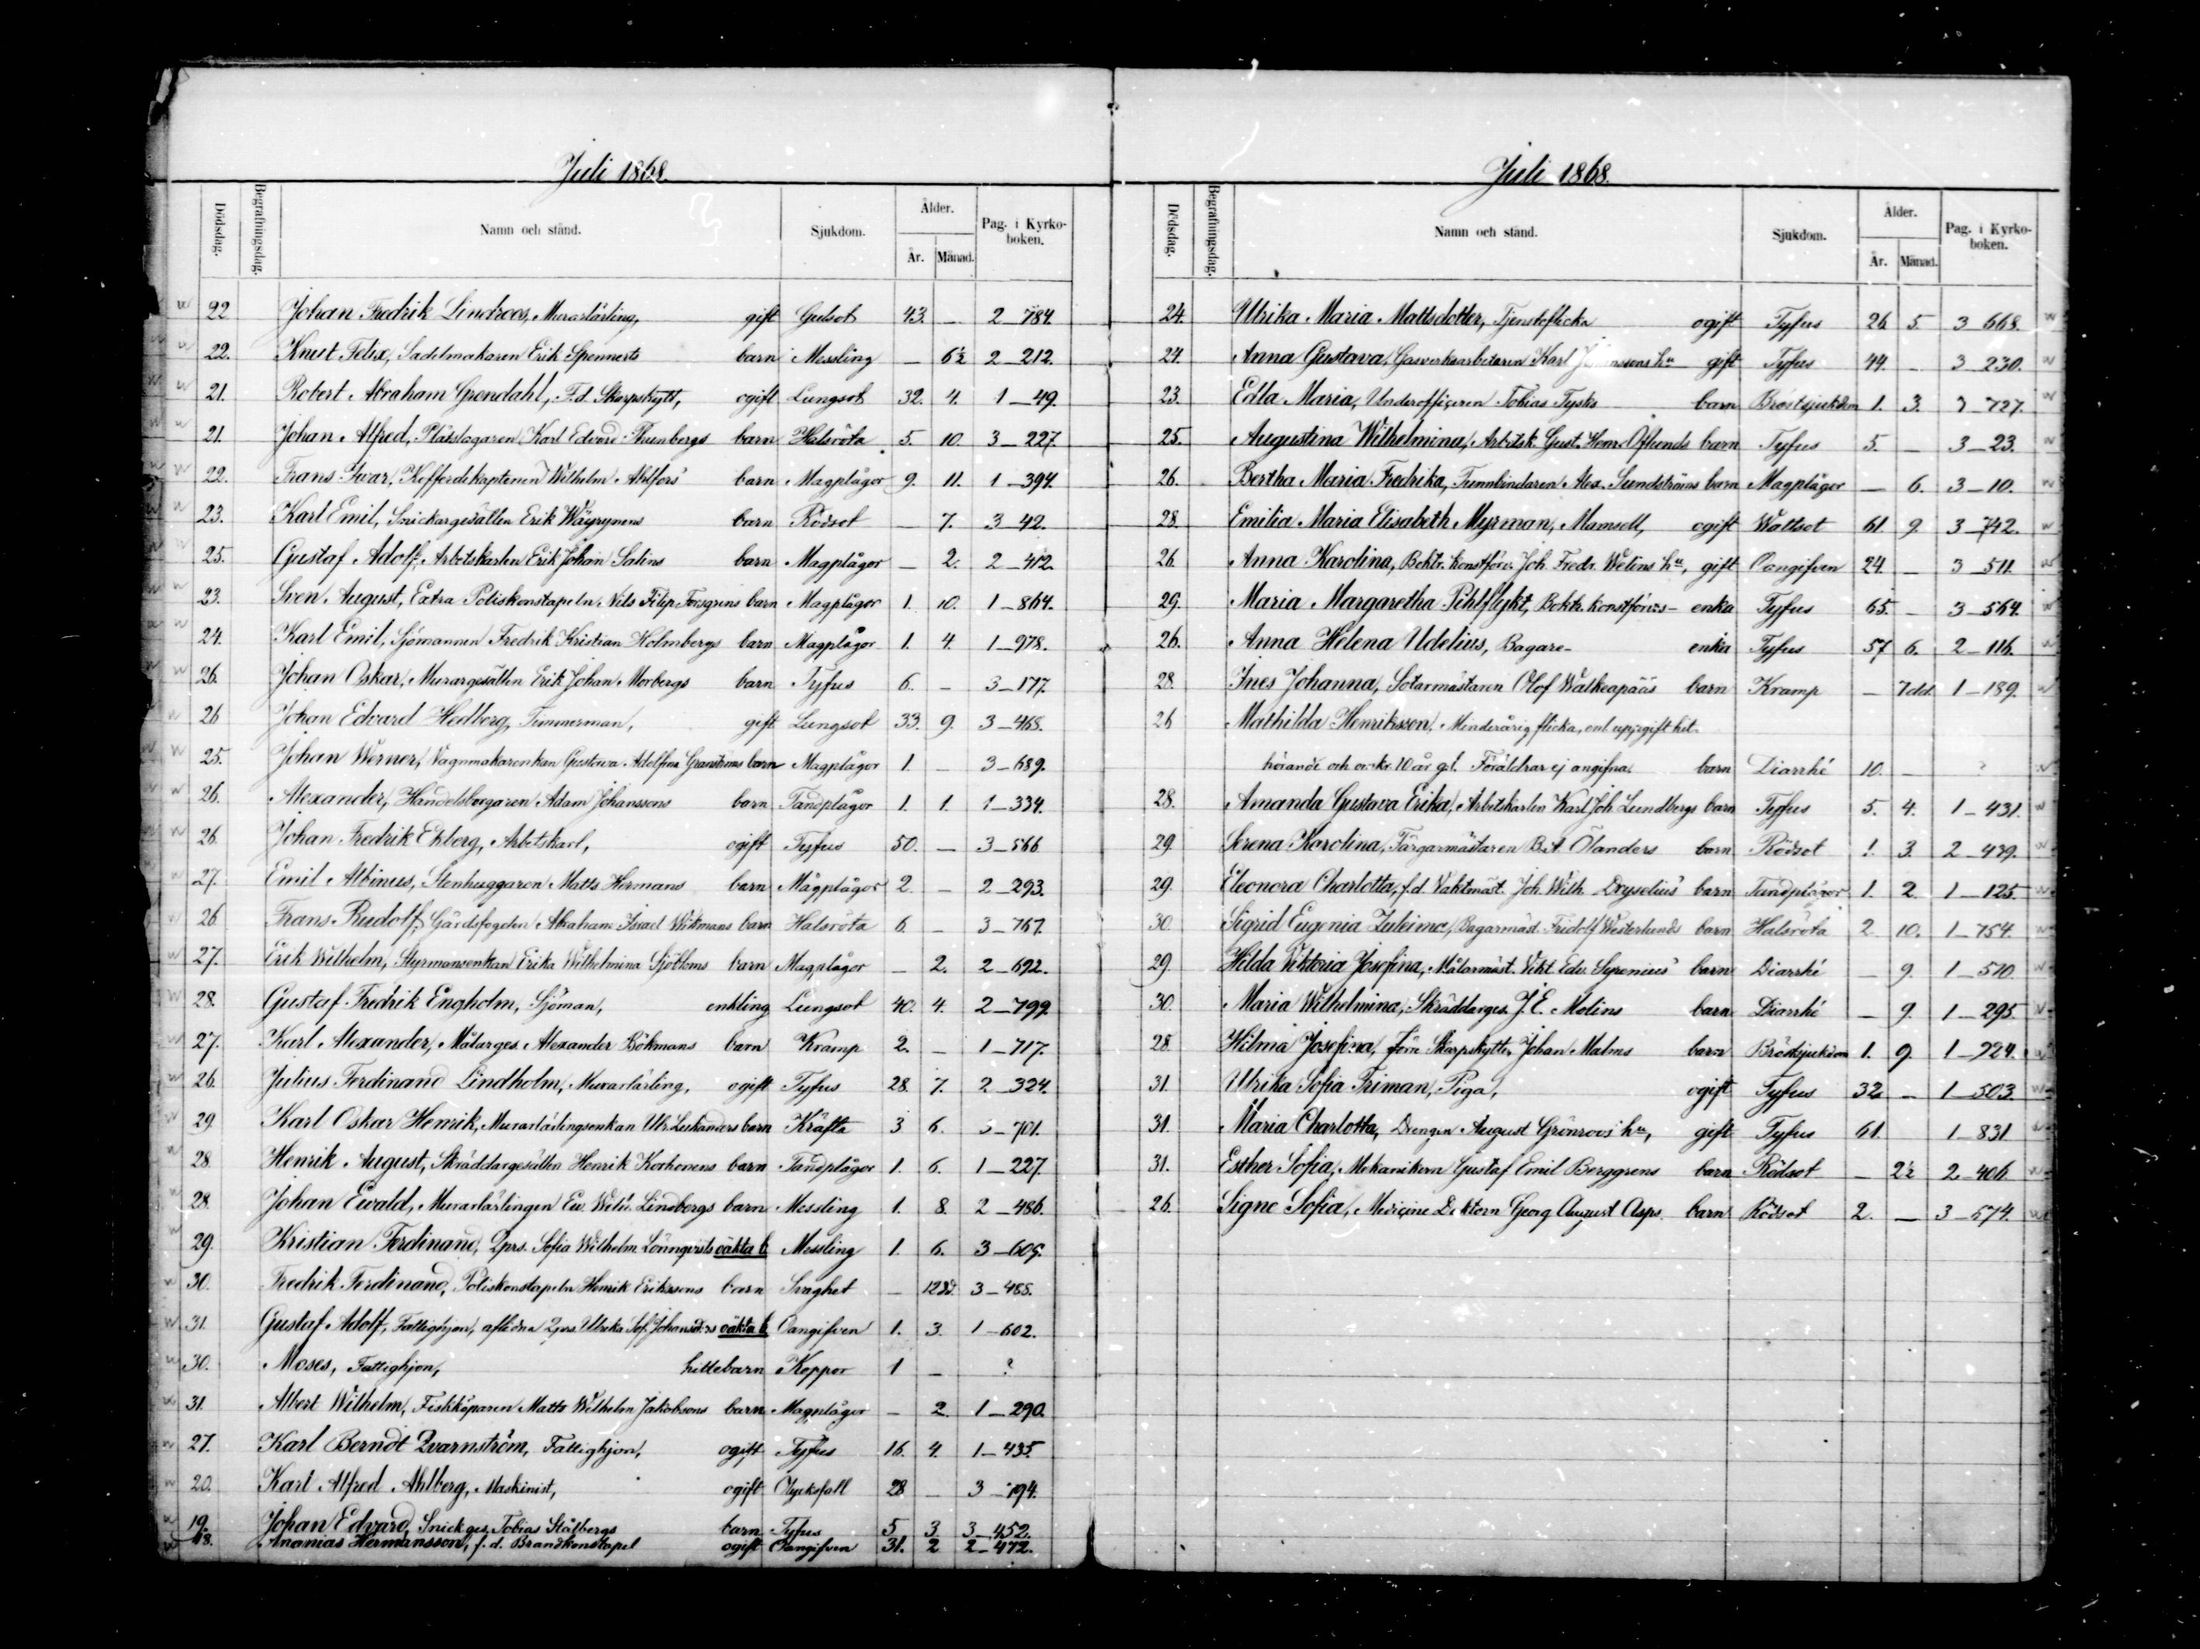 Juli 1868.
Dödsdag. Begrafningsdag. Namn och stånd. Sjukdom. Ålder. År. Månad. Pag. i Kyrko-boken.
22 Johan Fredrik Lindroos, Murarlärling, gift Gulsot 43. — 2 784.
22. Knut Felix, Sadelmakaren Erik Spennerts barn Messling — 6½ 2 212.
21. Robert Abraham Grondahl, F.d. Skarpskytt, ogift Lungsot 32. 4. 1 — 49.
21. Johan Alfred, Plåtslagaren Karl Edvard Thunbergs barn Halsröta 5. 10. 3 — 227.
22. Frans Ivar, Kofferdikaptenen Wilhelm Ahlfors' barn Magplågor 9. 11. 1 — 394.
23. Karl Emil, Snickargesällen Erik Wäyrynens barn Rödsot — 7. 3 42.
25. Gustaf Adolf, Arbetskarlen Erik Johan Salins barn Magplågor — 2. 2 — 412.
23. Sven August, Extra Poliskonstapeln Nils Filip Forsgrens barn Magplågor 1. 10. 1 — 864.
24. Karl Emil, Sjömannen Fredrik Kristian Holmbergs barn Magplågor 1. 4. 1 — 978.
26. Johan Oskar, Murargesällen Erik Johan Morbergs barn Tyfus 6. — 3 — 177.
26 Johan Edvard Hedberg, Timmerman, gift Lungsot 33. 9. 3 — 468.
25. Johan Werner, Vagnmakarenkan Gustava Adolfina Granströms barn Magplågor 1. — 3 — 689.
26. Alexander, Handelsborgaren Adam Johanssons barn Tandplågor 1. 1. 1 — 334.
26. Johan Fredrik Ekberg, Arbetskarl, ogift Tyfus 50. — 3 — 566
27. Emil Albinus, Stenhuggaren Matts Hermans barn Magplågor 2. — 2 — 293.
26 Frans Rudolf, Gårdsfogden Abraham Israel Wikmans barn Halsröta 6. — 3 — 767.
27. Erik Wilhelm, Styrmansenkan Erika Wilhelmina Sjöbloms barn Magplågor — 2. 2 — 692.
28. Gustaf Fredrik Engholm, Sjöman, enkling Lungsot 40. 4. 2 — 799.
27. Karl Alexander, Målarges. Alexander Bökmans barn Kramp 2. — 1 — 717.
26. Julius Ferdinand Lindholm, Murarlärling, ogift Tyfus 28. 7. 2 — 324.
29. Karl Oskar Henrik, Murarlärlingsenkan Ulr. Leskanders barn Kräfta 3 6. 3 — 701.
28. Henrik August, Skräddargesällen Henrik Korhonens barn Tandplågor 1. 6. 1 — 227.
28. Johan Ewald, Murarlärlingen Ew. Wilh. Lindbergs barn Messling 1. 8. 2 — 486.
29. Kristian Ferdinand, Qprs. Sofia Wilhelm. Lönnqvists oäkta b. Messling 1. 6. 3 — 609.
30. Fredrik Ferdinand, Poliskonstapeln Henrik Erikssons barn Svaghet — 12 dd. 3 — 488.
31. Gustaf Adolf, Fattighjon, aflidna Qprs. Ulrika Sof. Johansd:rs oäkta b. Oangifven 1. 3. 1 — 602.
30. Moses, Fattighjon, hittebarn Koppor 1 — ?
31. Albert Wilhelm, Fiskköparen Matts Wilhelm Jakobsons barn Magplågor — 2. 1 — 290.
27. Karl Berndt Qvarnström, Fattighjon, ogift Tyfus 16. 4. 1 — 435.
20. Karl Alfred Ahlberg, Maskinist, ogift Olycksfall 28 — 3 — 194.
19. Johan Edvard, Snickges. Tobias Stålbergs barn Tyfus 5 3 3 — 452.
18. Ananias Hermansson, f. d. Brandkonstapel ogift Oangifven 31. 2 2 — 472.
Juli 1868.
Dödsdag. Begrafningsdag. Namn och stånd. Sjukdom. Ålder. År. Månad. Pag. i Kyrko-boken.
24. Ulrika Maria Mattsdotter, Tjensteflicka ogift Tyfus 26. 5. 3 668.
24. Anna Gustava, Gasverksarbetaren Karl Johanssons hu gift Tyfus 44. — 3 — 230.
23. Edla Maria, Underofficeren Tobias Tysks barn Bröstsjukdom 1. 3. 3 — 727.
25. Augustina Wilhelmina, Arbetsk. Gust. Henr. Öflunds barn Tyfus 5. — 3 — 23.
26. Bertha Maria Fredrika, Tunnbindaren Alex. Sundströms barn Magplågor — 6. 3 — 10.
28. Emilia Maria Elisabeth Myrman, Mamsell, ogift Wattsot 61. 9. 3 — 742.
26. Anna Karolina, Boktr. konstförv. Joh. Fredr. Welins hu, gift Oangifven 24. — 3 — 511.
29. Maria Margaretha Pihlflykt, Boktr. konstförvs- enka Tyfus 65. — 3 — 564.
26. Anna Helena Udelius, Bagare- enka Tyfus 57 6. 2 — 116.
28. Ines Johanna, Sotarmästaren Olof Walkeapääs barn Kramp — 7 dd. 1 — 189.
26 Mathilda Henriksson, Minderårig flicka, enl. uppgift hit-
hörande och omkr. 10 år gl. Föräldrar ej angifna. barn Diarrhé 10. — ?
28. Amanda Gustava Erika, Arbetskarlen Karl Joh. Lundbergs barn Tyfus 5. 4. 1 — 431.
29. Serena Karolina, Färgarmästaren B. A. Ölanders barn Rödsot 1. 3. 2 — 439.
29. Eleonora Charlotta, f.d. Vaktmäst. Joh. Wilh. Dryselius' barn Tandplågor 1. 2. 1 — 125.
30. Sigrid Eugenia Zuleima, Bagarmäst. Fridolf Westerlunds barn Halsröta 2. 10. 1 — 754.
29. Hilda Viktoria Josefina, Målarmäst. Vikt. Edv. Syrenius' barn Diarrhé — 9. 1 — 510.
30. Maria Wilhelmina, Skräddarges. J. E. Molins barn Diarrhé — 9. 1 — 295.
28. Hilma Josefina, förre Skarpskytten Johan Malms barn Bröstsjukdom 1. 9. 1 — 924.
31. Ulrika Sofia Friman, Piga, ogift Tyfus 32. — 1 — 503.
31. Maria Charlotta, Drengen August Grönroos' hu, gift Tyfus 61. 1 — 831
31. Esther Sofia, Mekanikern Gustaf Emil Berggrens barn Rödsot — 2½ 2 — 406
26. Signe Sofia, Medicine Doktorn Georg August Asps barn Rödsot 2. — 3 — 674.